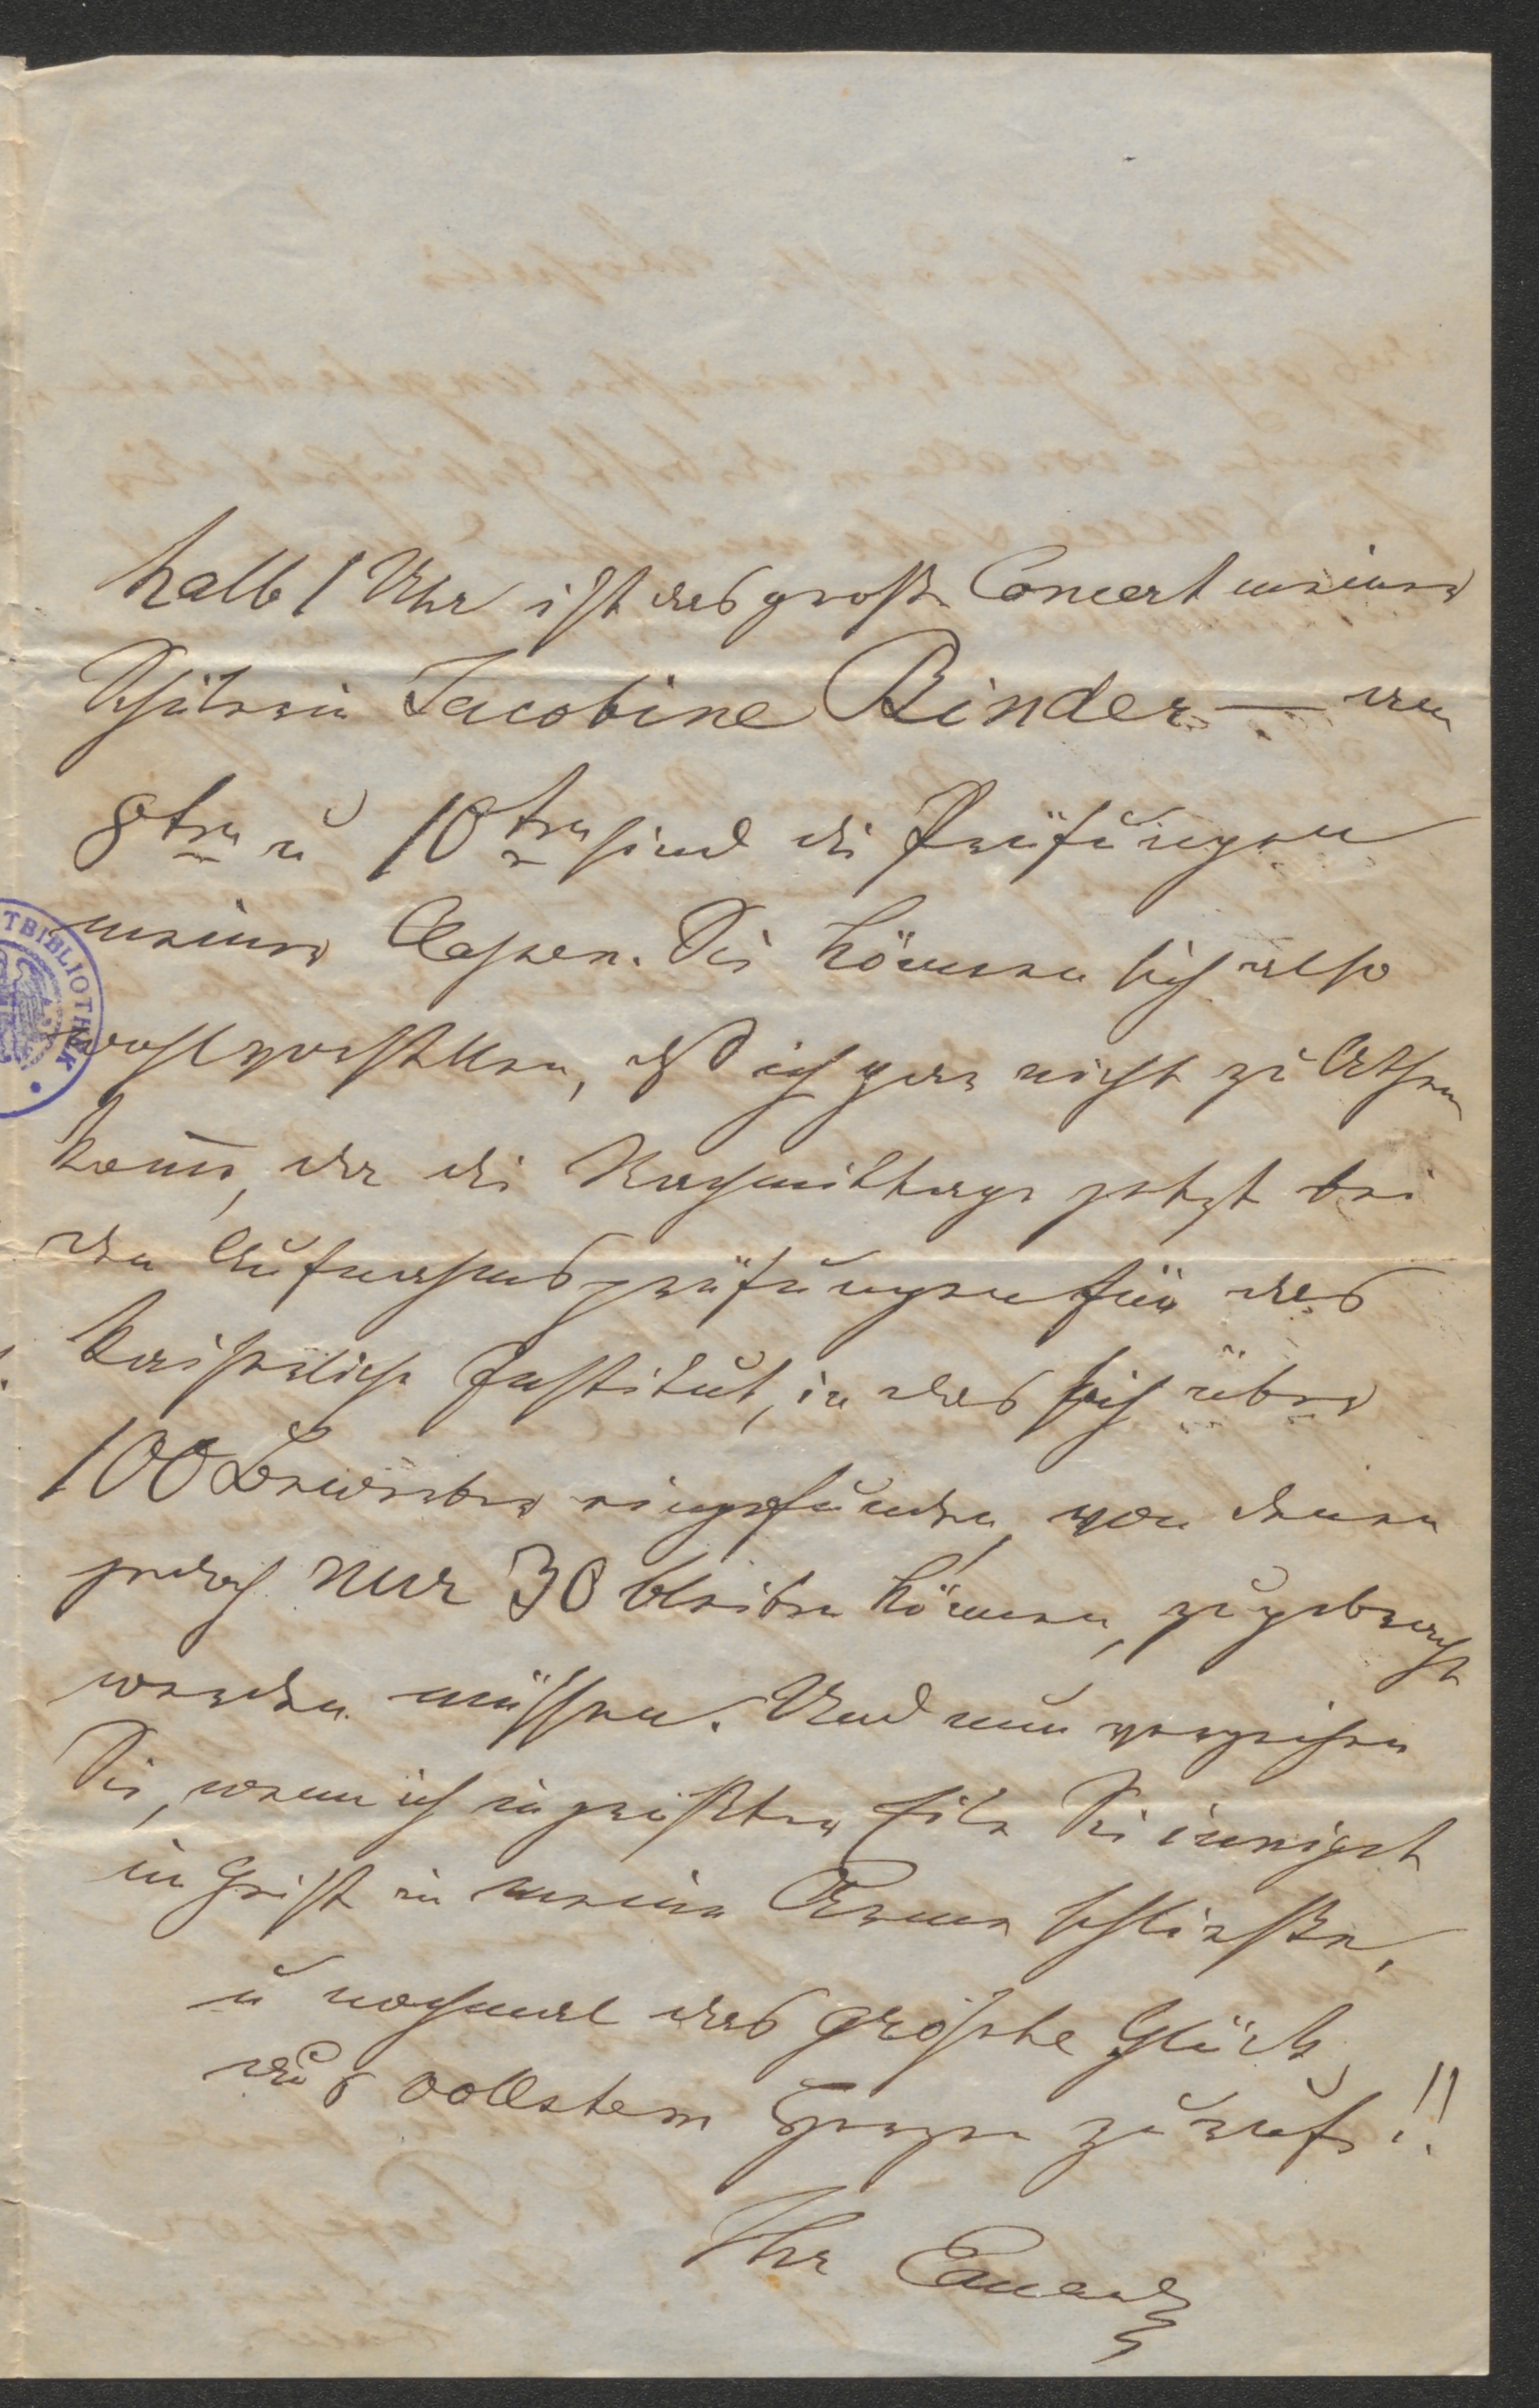 halb 1 Uhr ist das große Concert meiner
Schülerin Jacobine Binder — den
8ten u 10ten sind die Prüfungen
meiner Classen. Sie können sich also
wohl vorstellen, daß ich gar nicht zu Athem
kom̅e, da die Nachmittage jetzt bei
den Aufnahmsprüfungen für das
kaiserliche Institut, in das sich über
100 Bewerber eingefunden, von denen
jedoch nur 30 bleiben können, zugebracht
werden müssen. Und nun verzeihen
Sie, wenn ich in größter Eile Sie innigst
im Geist in meine Arme schließe,
u nochmal das größte Glück
aus vollstem Herzen zurufe!!
Ihr Eduard
TBIBLIOTHEK